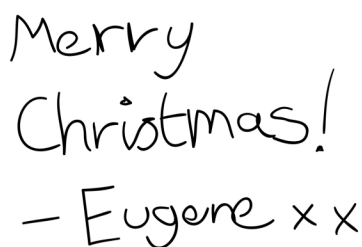 Merry
Christmas!
- Eugene x x